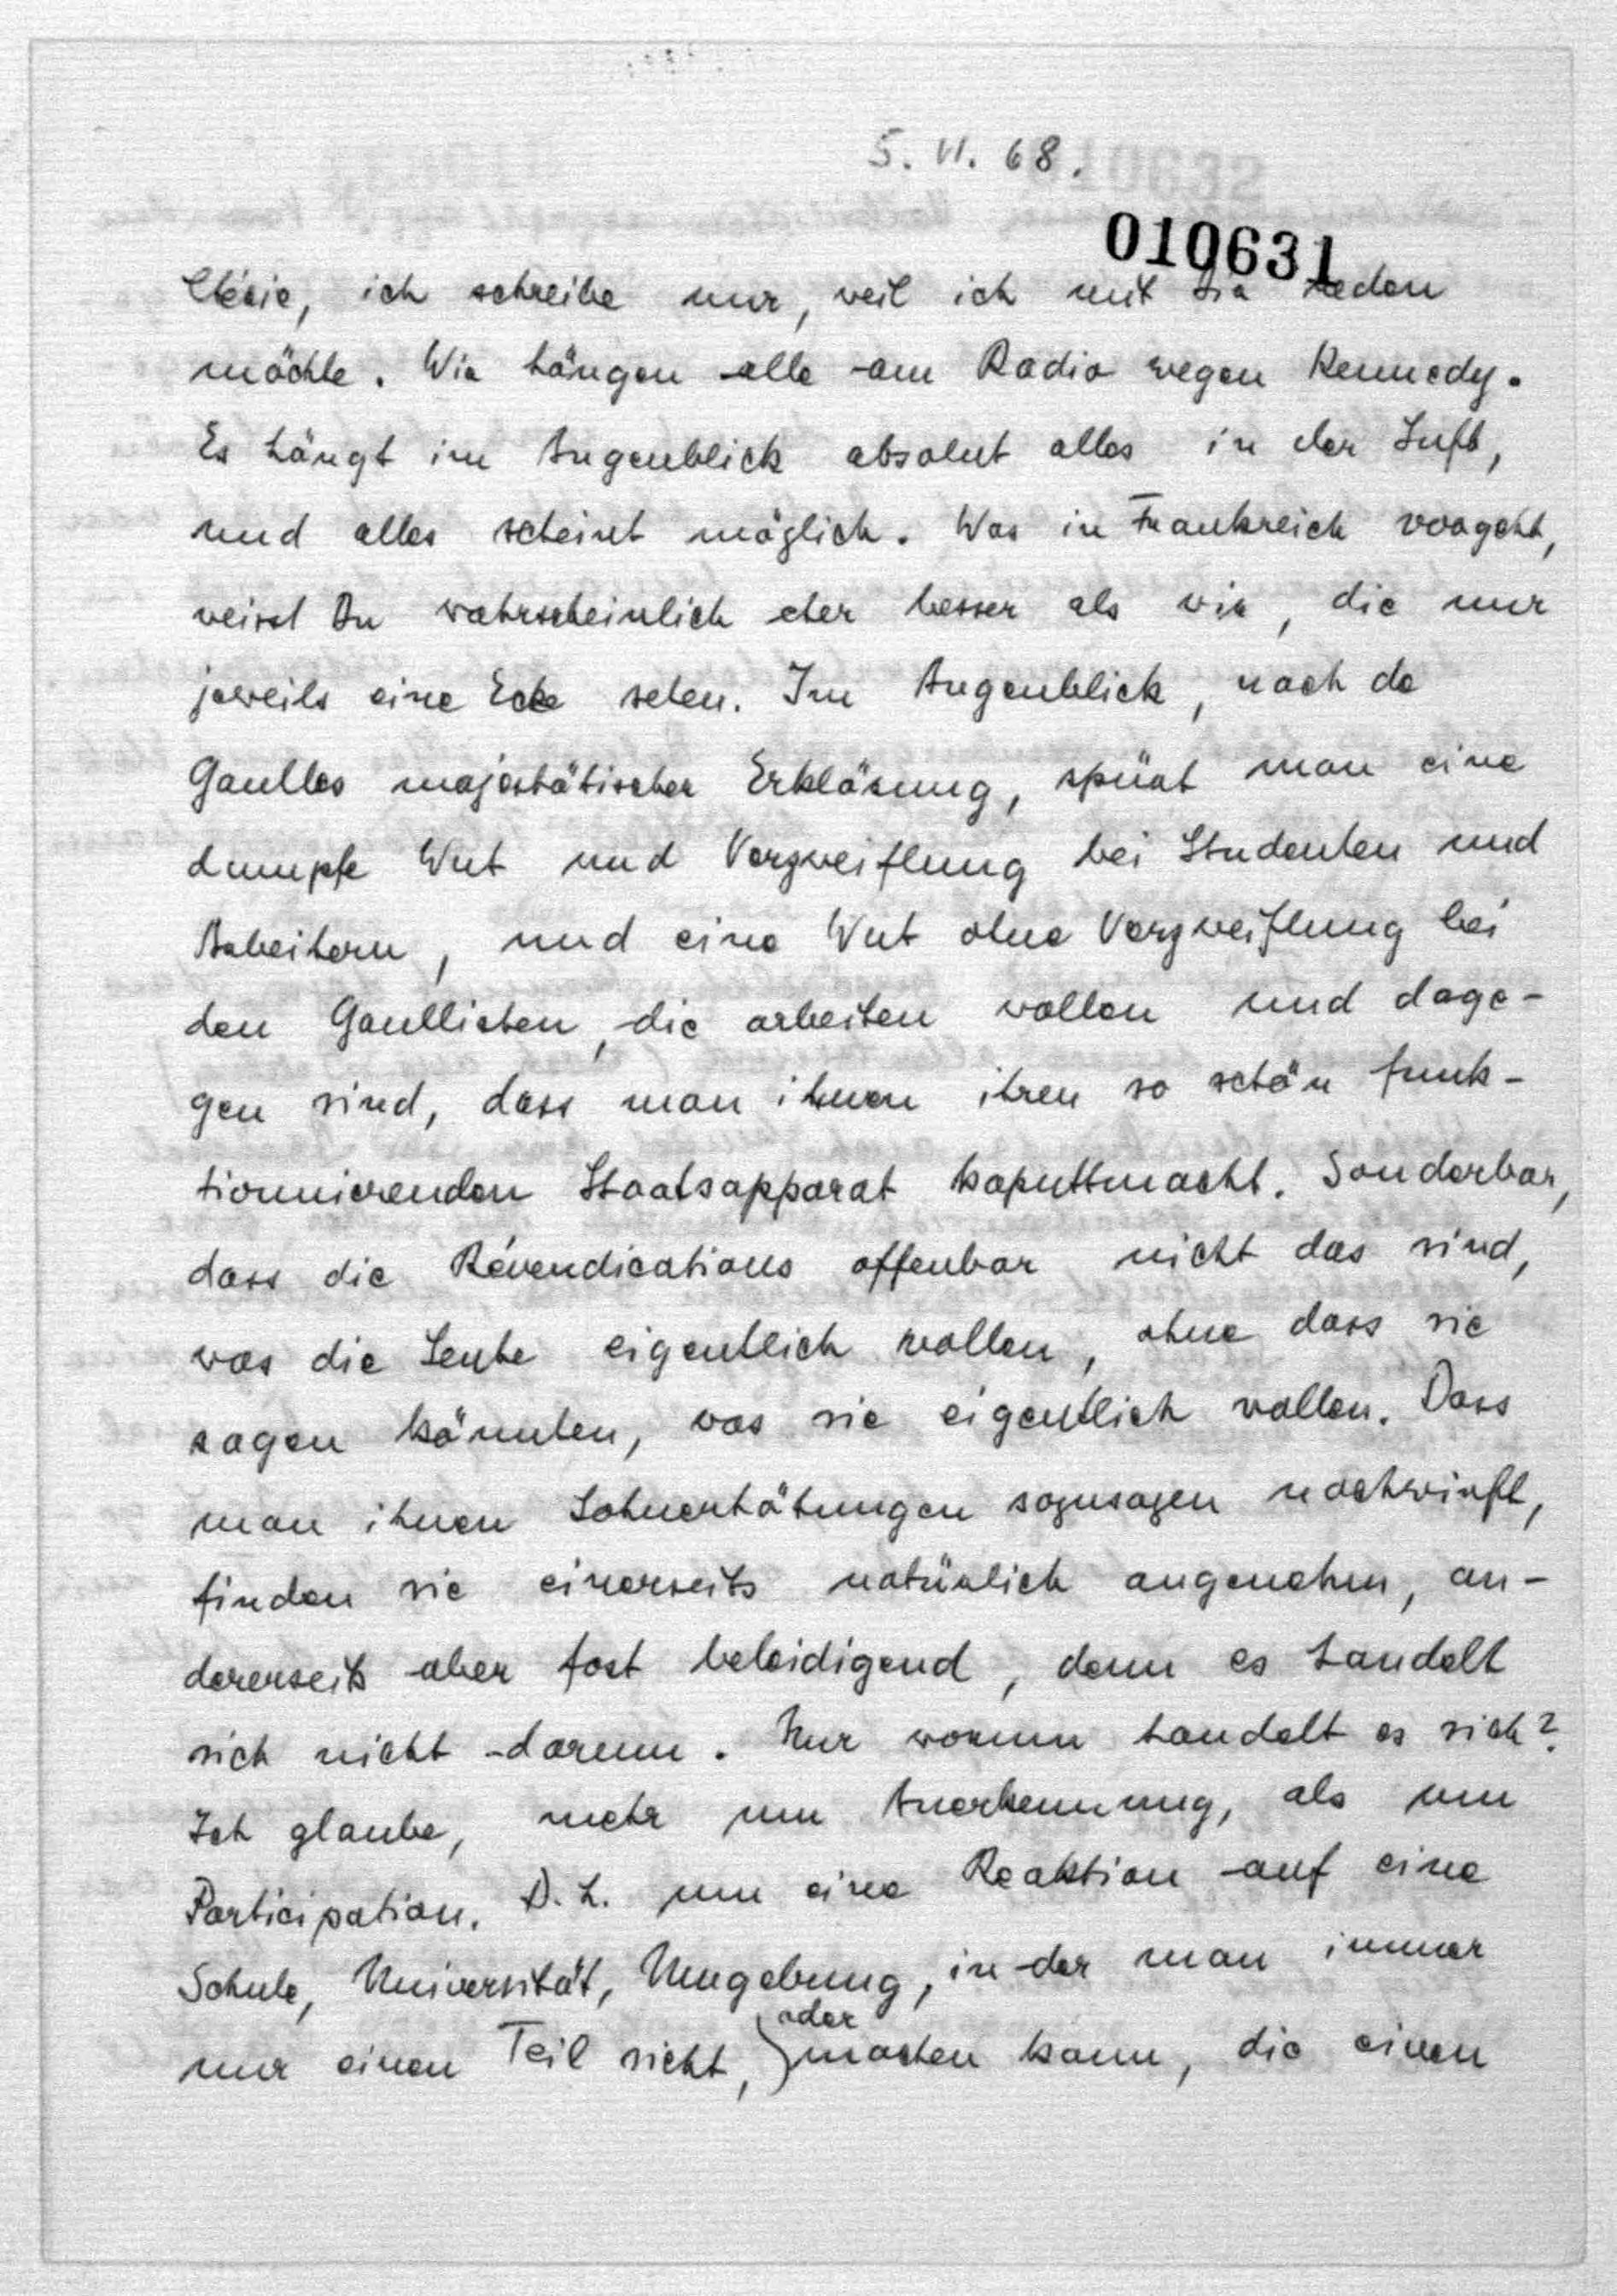 5. VI. 68.
010631
Chérie, ich schreibe nur, weil ich mit Dir reden
möchte. Wir hängen alle am Radio wegen Kennedy.
Es hängt im Augenblick absolut alles in der Luft,
und alles scheint möglich. Was in Frankreich vorgeht,
weisst Du wahrscheinlich eher besser als wir, die nur
jeweils eine Ecke sehen. Im Augenblick, nach de
Gaulles majestätischer Erklärung, spürt man eine
dumpfe Wut und Verzweiflung bei Studenten und
Arbeitern, und eine Wut ohne Verzweiflung bei
den Gaullisten, die arbeiten wollen und dage-
gen sind, dass man ihnen ihren so schön funk-
tionnierenden Staatsapparat kaputtmacht. Sonderbar,
dass die Révendications offenbar nicht das sind,
was die Leute eigentlich wollen, ohne dass sie
sagen könnten, was sie eigentlich wollen. Dass
man ihnen Lohnerhöhungen sozusagen nachwirft,
finden sie einerseits natürlich angenehm, an-
dererseits aber fast beleidigend, denn es handelt
sich nicht darum. Nur worum handelt es sich?
Ich glaube, mehr um Anerkennung, als um
Participation. D.h. um eine Reaktion auf eine
Schule, Universität, Umgebung, in der man immer
oder
nur einen Teil sieht, machen kann, die einen